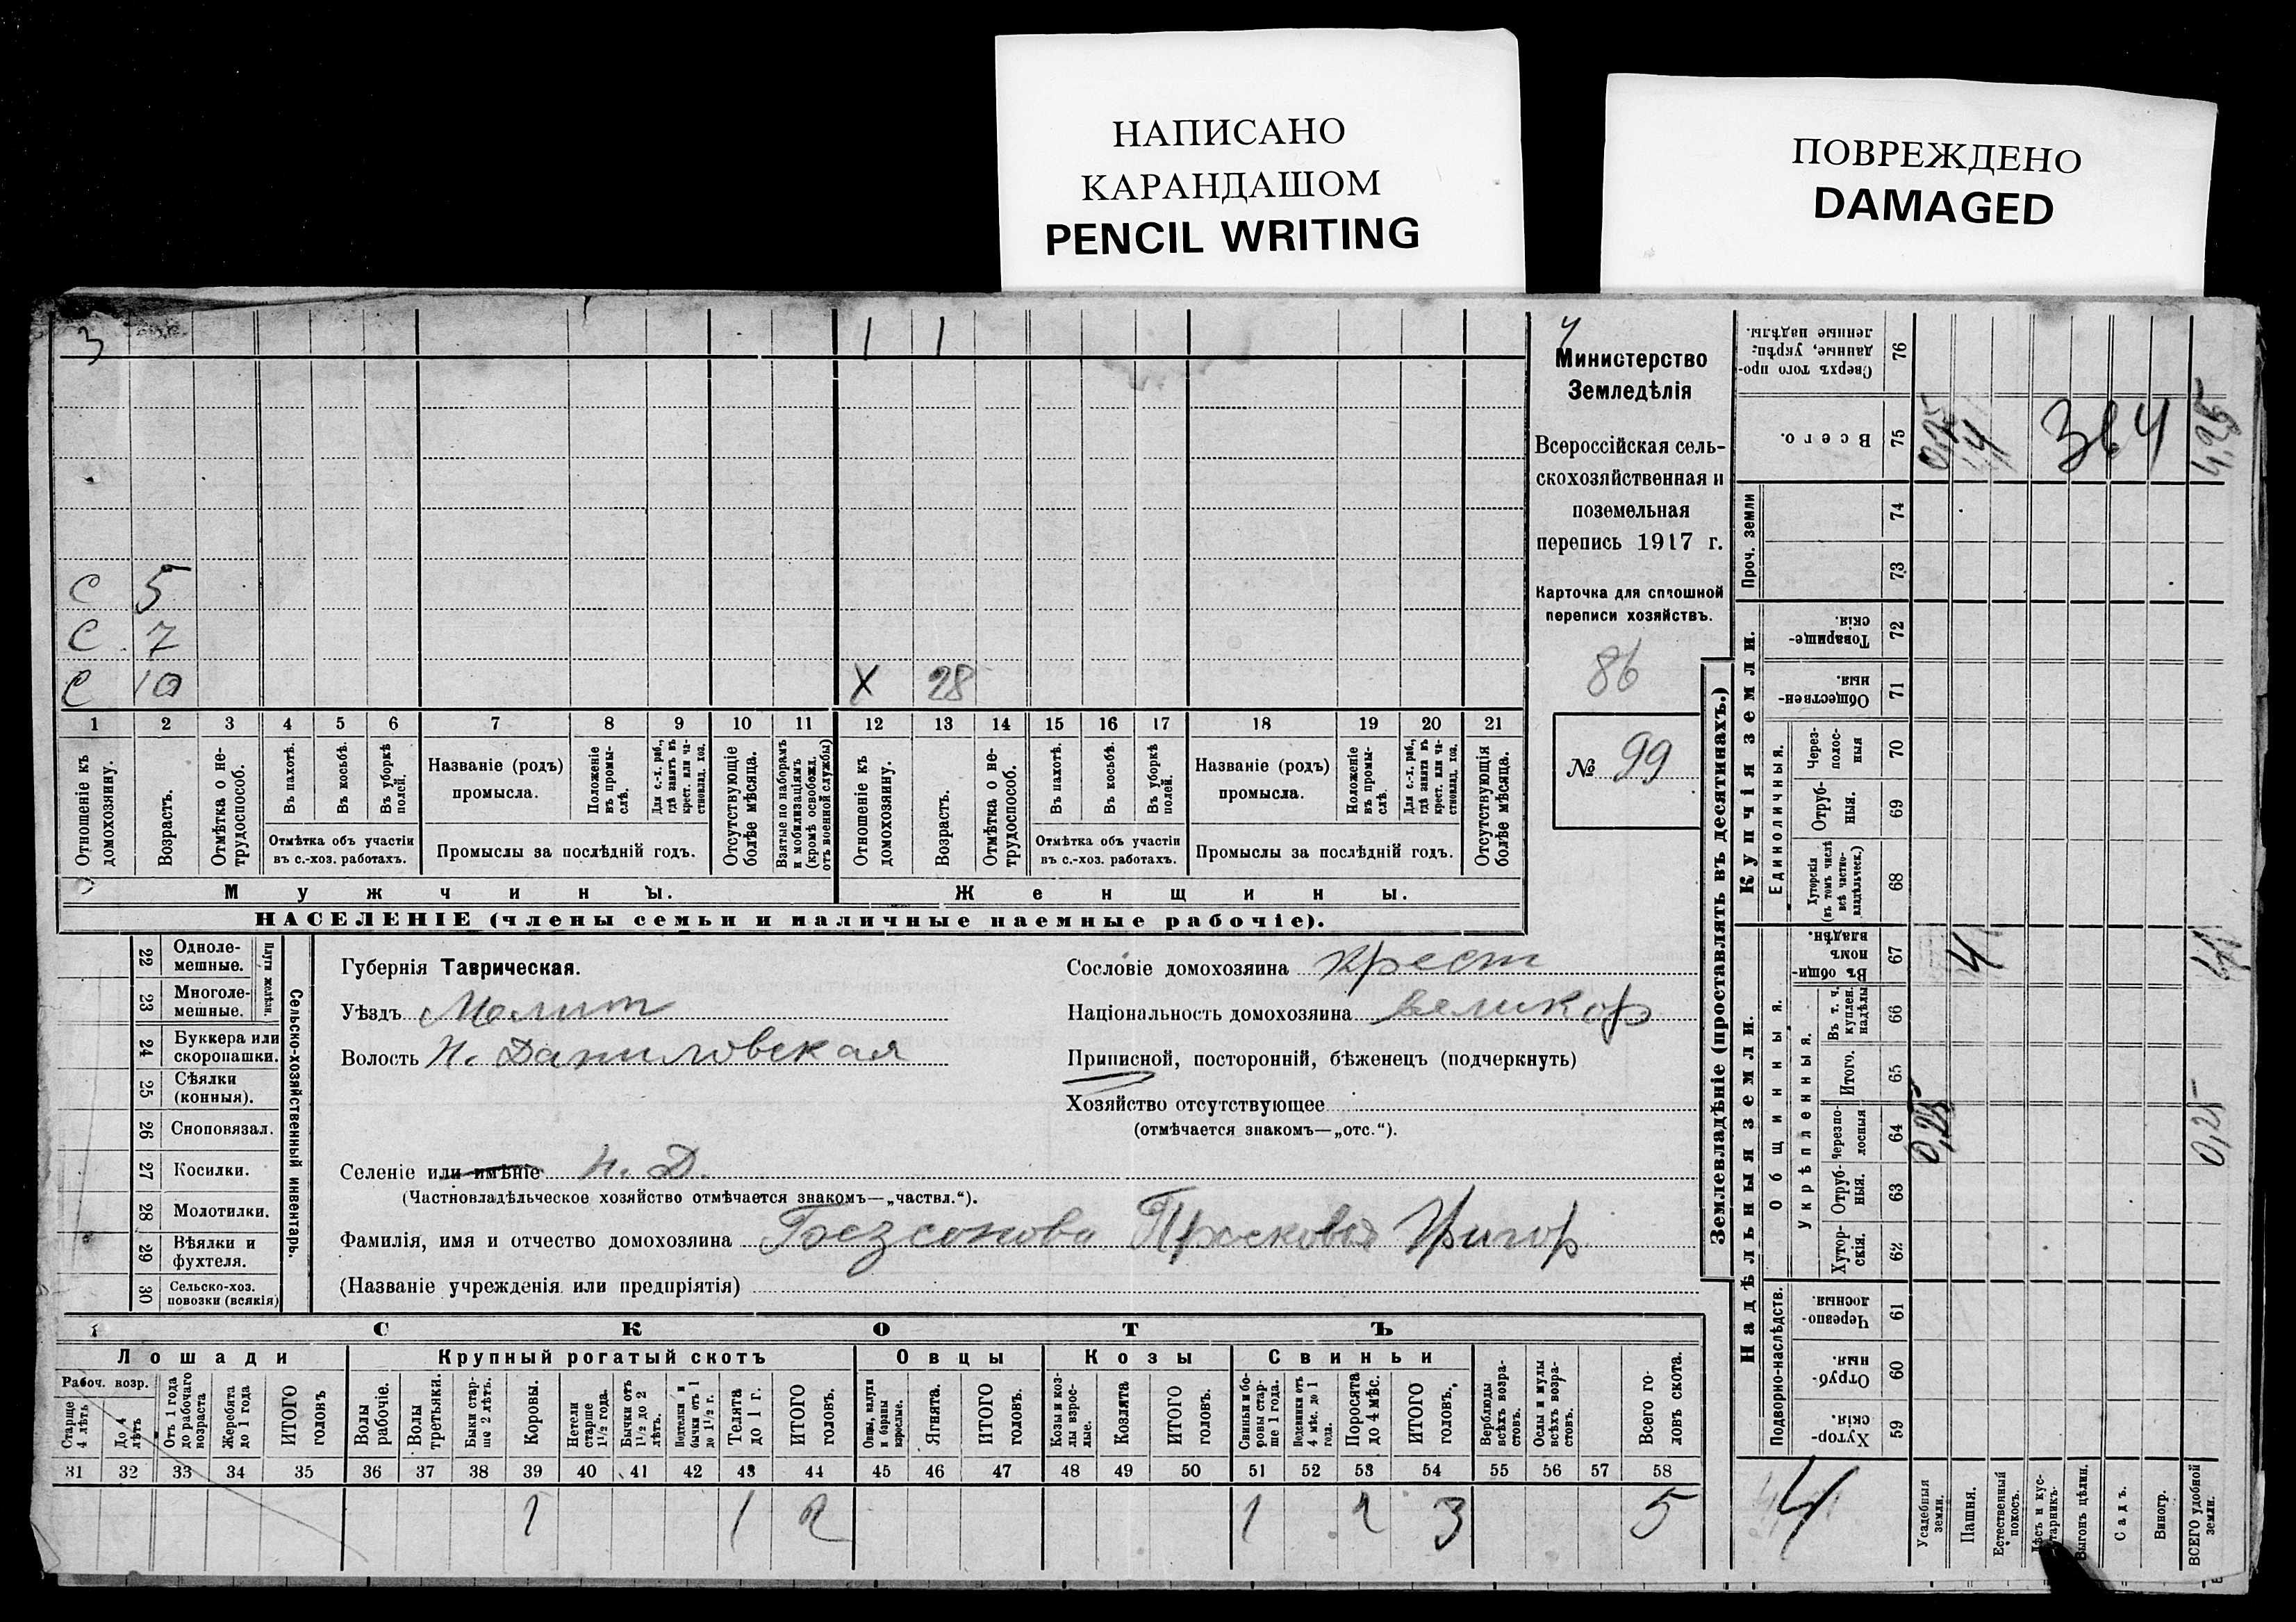 НАПИСАНО
КАРАНДАШОМ
PENCIL WRITING
ПОВРЕЖДЕНО
DAMAGED
3 1 1 4
Министерство
Земледѣлія
Всероссійская сель-
скохозяйственная и
поземельная
перепись 1917 г.
Карточка для сплошной
переписи хозяйствъ.
86
№ 99
С 5
С 7
С 10 X 28
1 2 3 4 5 6 7 8 9 10 11 12 13 14 15 16 17 18 19 20 21
Отношеніе къ домохозяину.
Возрастъ.
Отмѣтка о не-трудоспособ.
Въ пахотѣ.
Въ косьбѣ.
Въ уборкѣ полей.
Отмѣтка объ участіи
въ с.-хоз. работахъ.
Названіе (родъ)
промысла.
Положеніе въ промы-слѣ.
Для с.-х. раб., гдѣ занятъ въ крест. или ча-стновлад. хоз.
Промыслы за послѣдній годъ.
Отсутствующіе болѣе мѣсяца.
Взятые по наборамъ и мобилизаціямъ (кромѣ освобожд. отъ военной службы)
Отношеніе къ домохозяину.
Возрастъ.
Отмѣтка о не-трудоспособ.
Въ пахотѣ.
Въ косьбѣ.
Въ уборкѣ полей.
Отмѣтка объ участіи
въ с.-хоз. работахъ.
Названіе (родъ)
промысла.
Положеніе въ промы-слѣ.
Для с.-х. раб., гдѣ занята въ крест. или ча-стновлад. хоз.
Промыслы за послѣдній годъ.
Отсутствующія болѣе мѣсяца.
Мужчины. Женщины.
НАСЕЛЕНІЕ (члены семьи и наличные наемные рабочіе).
22 Одноле-мешные.
23 Многоле-мешные.
Плуги желѣзн.
24 Буккера или скоропашки.
25 Сѣялки (конныя).
26 Сноповязал.
27 Косилки.
28 Молотилки.
29 Вѣялки и фухтеля.
30 Сельско-хоз. повозки (всякія)
Сельско-хозяйственный инвентарь.
Губернія Таврическая.
Уѣздъ Мелит
Волость Н. Даниловская
Сословіе домохозяина крест
Національность домохозяина великор
Приписной, посторонній, бѣженецъ (подчеркнуть)
Хозяйство отсутствующее
(отмѣчается знакомъ—„отс.“).
Селеніе или имѣніе Н. Д.
(Частновладѣльческое хозяйство отмѣчается знакомъ—„частвл.“).
Фамилія, имя и отчество домохозяина Безсонова Просковья Григор
(Названіе учрежденія или предпріятія)
СКОТЪ
Лошади Крупный рогатый скотъ Овцы Козы Свиньи
Рабоч. возр.
Старше 4 лѣтъ
До 4 лѣтъ
Отъ 1 года до рабочаго возраста
Жеребята до 1 года
ИТОГО головъ
Волы рабочіе.
Волы третьяки.
Быки стар-ше 2 лѣтъ.
Коровы.
Нетели старше 1½ года.
Бычки отъ 1½ до 2 лѣтъ.
Подтелки и бычки отъ 1 до 1½ г.
Телята до 1 г.
ИТОГО головъ.
Овцы, валухи и бараны взрослые.
Ягнята.
ИТОГО головъ.
Козы и коз-лы взрос-лые.
Козлята
ИТОГО головъ.
Свиньи и бо-ровы стар-ше 1 года.
Подсвинки отъ 4 мѣс. до 1 года.
Поросята до 4 мѣс.
ИТОГО головъ.
Верблюды всѣхъ возра-стовъ.
Ослы и мулы всѣхъ возра-стовъ.
Всего го-ловъ скота.
31 32 33 34 35 36 37 38 39 40 41 42 43 44 45 46 47 48 49 50 51 52 53 54 55 56 57 58
1 1 2 1 2 3 5
Землевладѣніе (проставлять въ десятинахъ.)
Надѣльныя земли.
Купчія земли.
Проч. земли
Сверхъ того про-данные, укрѣп-ленные надѣлы. 76
Всего. 75
74
73
Товарище-скія. 72
Обществен-ныя. 71
Единоличныя.
Через-полос-ныя 70
Отруб-ныя. 69
Хуторскія (въ томъ числѣ всѣ частно-владѣльческ.) 68
Общинныя.
Въ общи-номъ владѣн. 67
Укрѣпленныя.
Въ т. ч. куплен. надѣлы 66
Итого. 65
Черезпо-лосныя 64
Отруб-ныя. 63
Хутор-скія. 62
Подворно-наслѣдств.
Черезпо-лосныя. 61
Отруб-ныя. 60
Хутор-скія. 59
0,25 4 364 4,25
4 4
0,25 0,25
4
Усадебныя земли.
Пашня.
Естественный покосъ.
Лѣсъ и кус-тарникъ.
Выгонъ цѣлин.
Садъ.
Виногр.
ВСЕГО удобной земли.